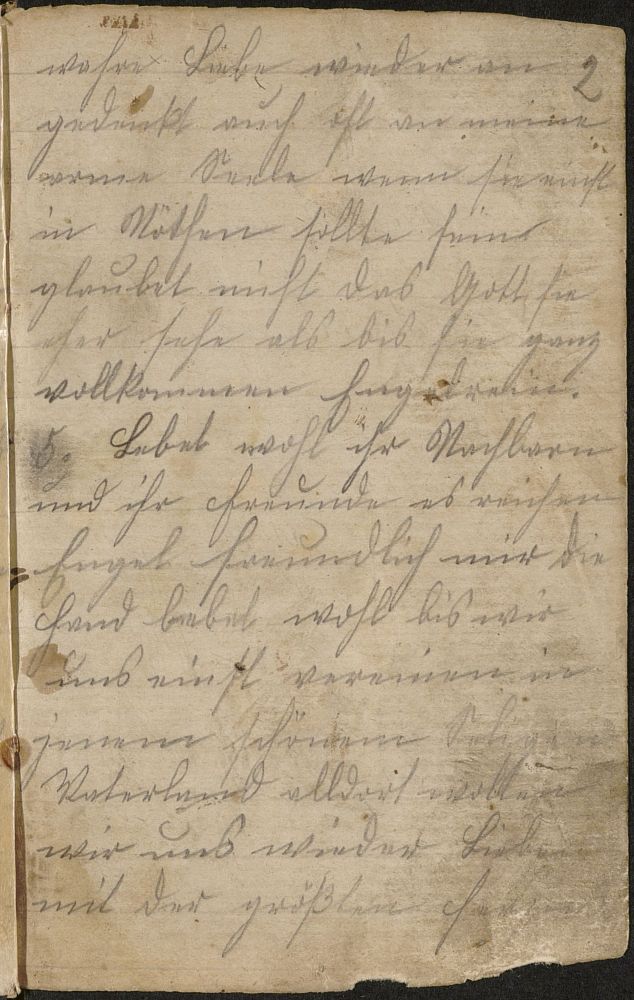 2
wahre Liebe wieder an
gedenkt auch oft an meine
arme Seele wenn sie einst
in Nöthen sollte sein
glaubet nicht das Gott sie
eher sehe als bis sie ganz
vollkommen Engelrein.
5. Lebet wohl ihr Nachbarn
und ihr Freunde es reichen
Engel freundlich mir die
Hand lebet wohl bis wir
uns einst vereinen in
jenem schönem Seligen
Vaterland alldort wollen
wir uns wieder Lieben
mit der größten